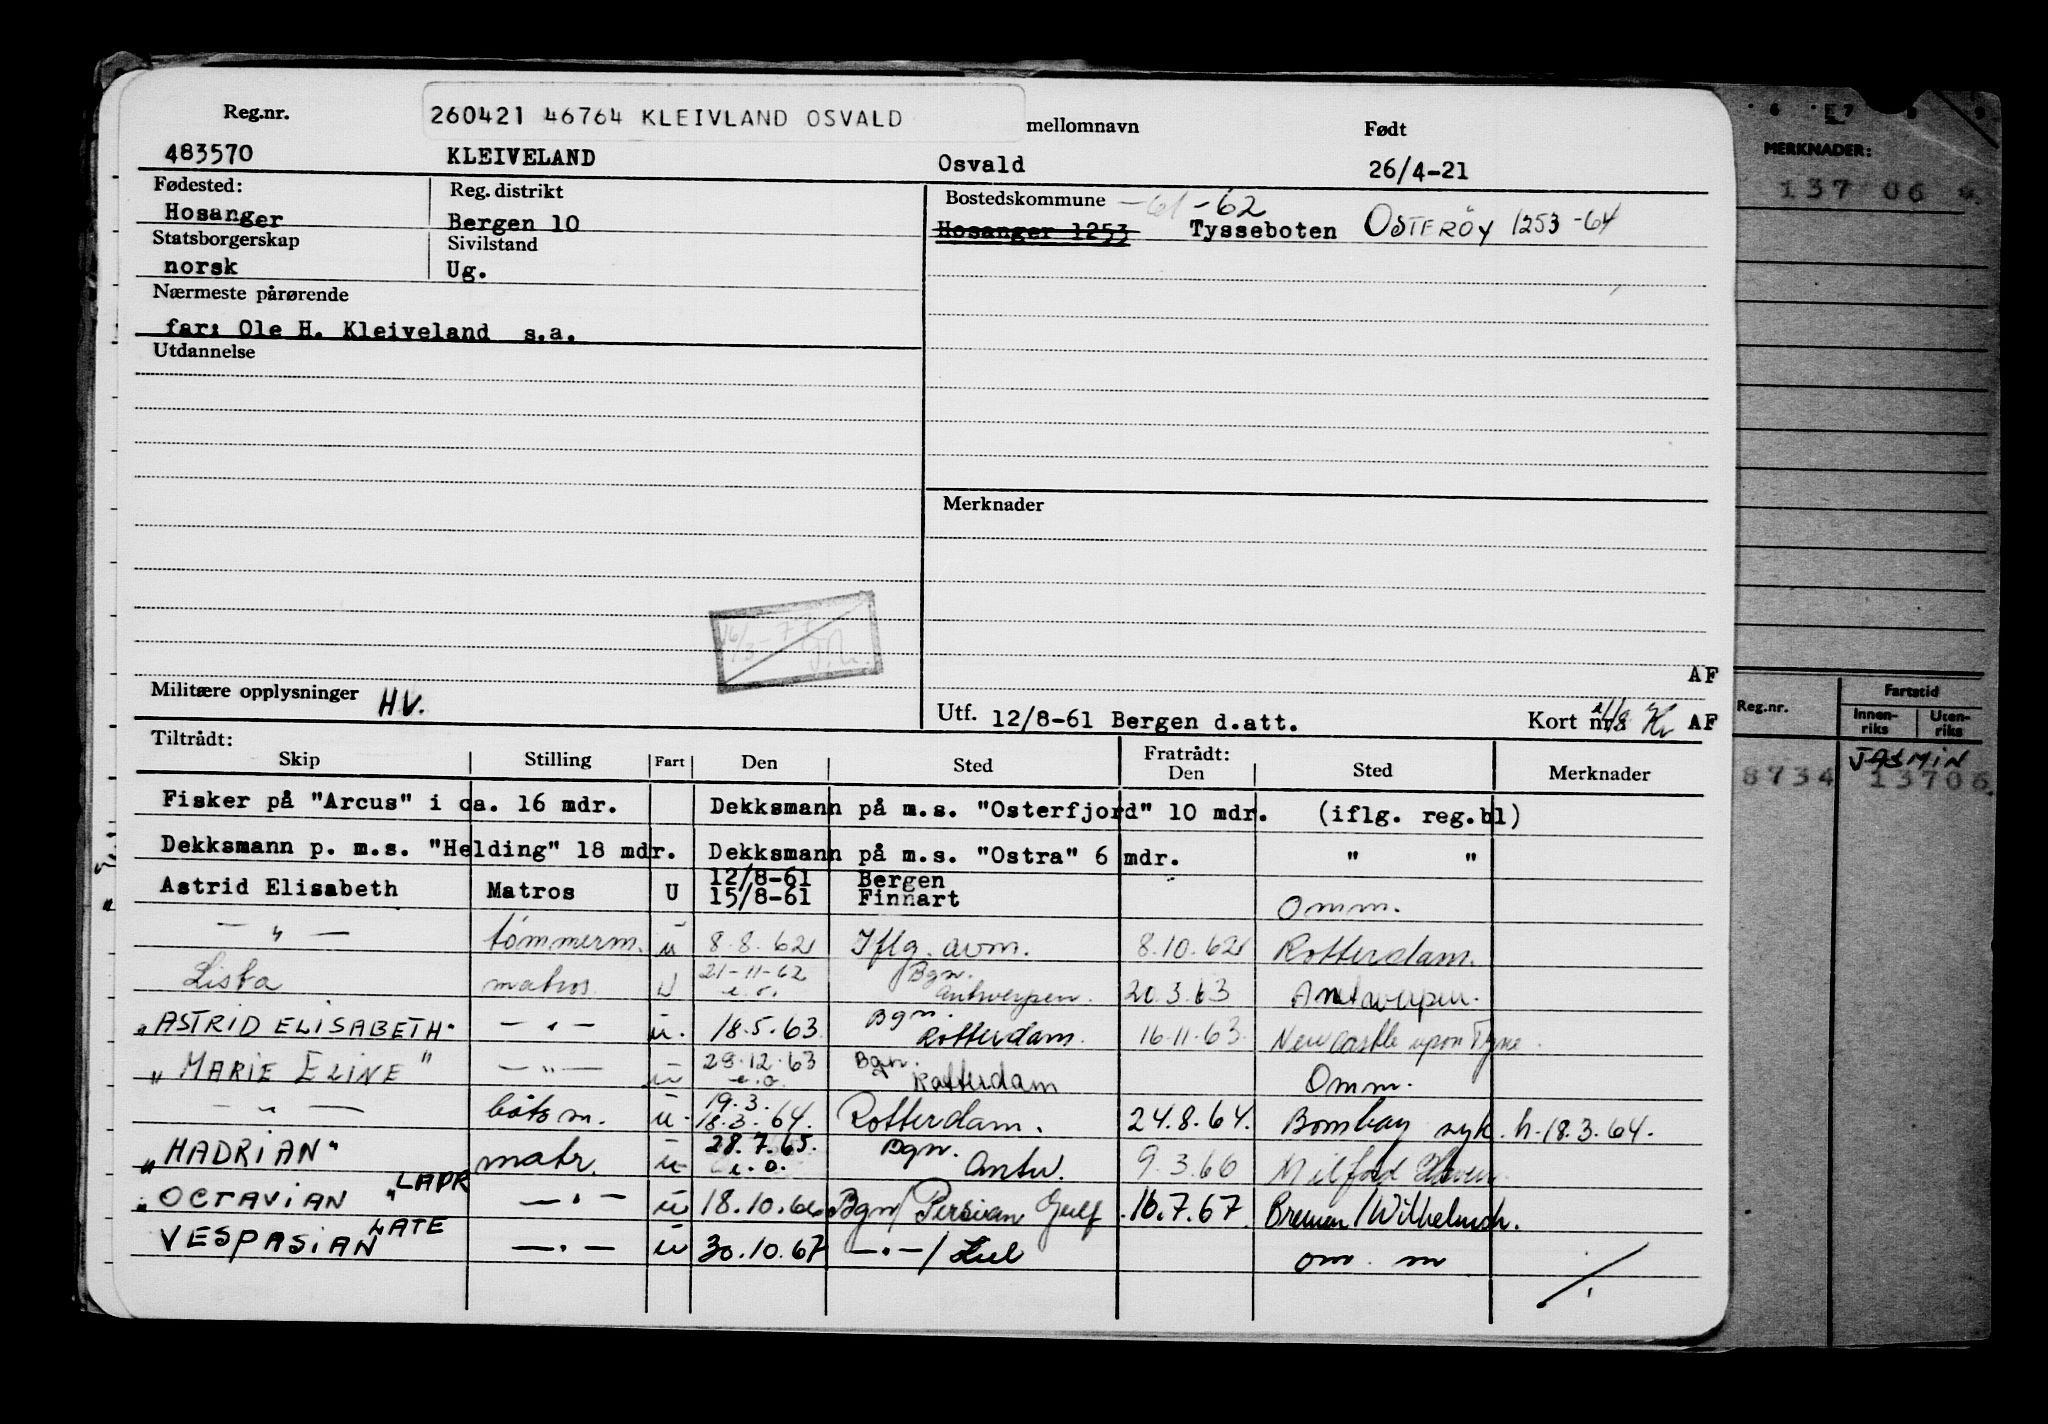 Reg.nr.
260421 46764 KLEIVLAND OSVALD
mellomnavn
Født
483570 KLEIVELAND Osvald 26/4-21
Fødested:
Hosanger
Reg. distrikt
Bergen 10
Bostedskommune -61 -62
Hosanger 1253 Tysseboten OSTERÖY 1253 -64
Statsborgerskap
norsk
Sivilstand
Ug.
Nærmeste pårørende
far: Ole H. Kleiveland s.a.
Utdannelse
Merknader
16/3-77
AF
Militære opplysninger HV.
Utf. 12/8-61 Bergen d.att. Kort nr. AF
Tiltrådt: Fratrådt:
Skip Stilling Fart Den Sted Den Sted Merknader
Fisker på "Arcus" i ca. 16 mdr. Dekksmann på m.s. "Osterfjord" 10 mdr. (iflg. reg.bl)
Dekksmann p. m.s. "Helding" 18 mdr. Dekksmann på m.s. "Ostra" 6 mdr. " "
12/8-61 Bergen
Astrid Elisabeth Matros U 15/8-61 Finnart Omm.
— " — tømmerm. u 8.8.62 Iflg. avm. 8.10.62 Rotterdam.
21-11-62 Bgn.
Lista matros U e.o. Antwerpen. 20.3.63 Antwerpen.
Bgn.
"ASTRID ELISABETH" — " — u. 18.5.63 Rotterdam. 16.11.63 Newcastle upon Tyne.
29.12.63 Bgn.
"MARIE ELINE" — " — u e.o. Rotterdam Omm.
19.3.
— " — båtsm. u. 18.3.64. Rotterdam. 24.8.64. Bombay syk. h. 18.3.64.
28.7.65. Bgn.
"HADRIAN" matr. u e.o. Antw. 9.3.66 Milford Haven
"OCTAVIAN" LADR — " — u 18.10.66 Bgn/Persian Gulf 16.7.67. Bremen/Wilhelmsh.
VESPASIAN LATE — " — u 30.10.67 — " —/ Kiel om. m
MERKNADER:
137 06
Reg.nr. Fartstid
Innen-
riks
Uten-
riks
JASMIN
8734 13706.